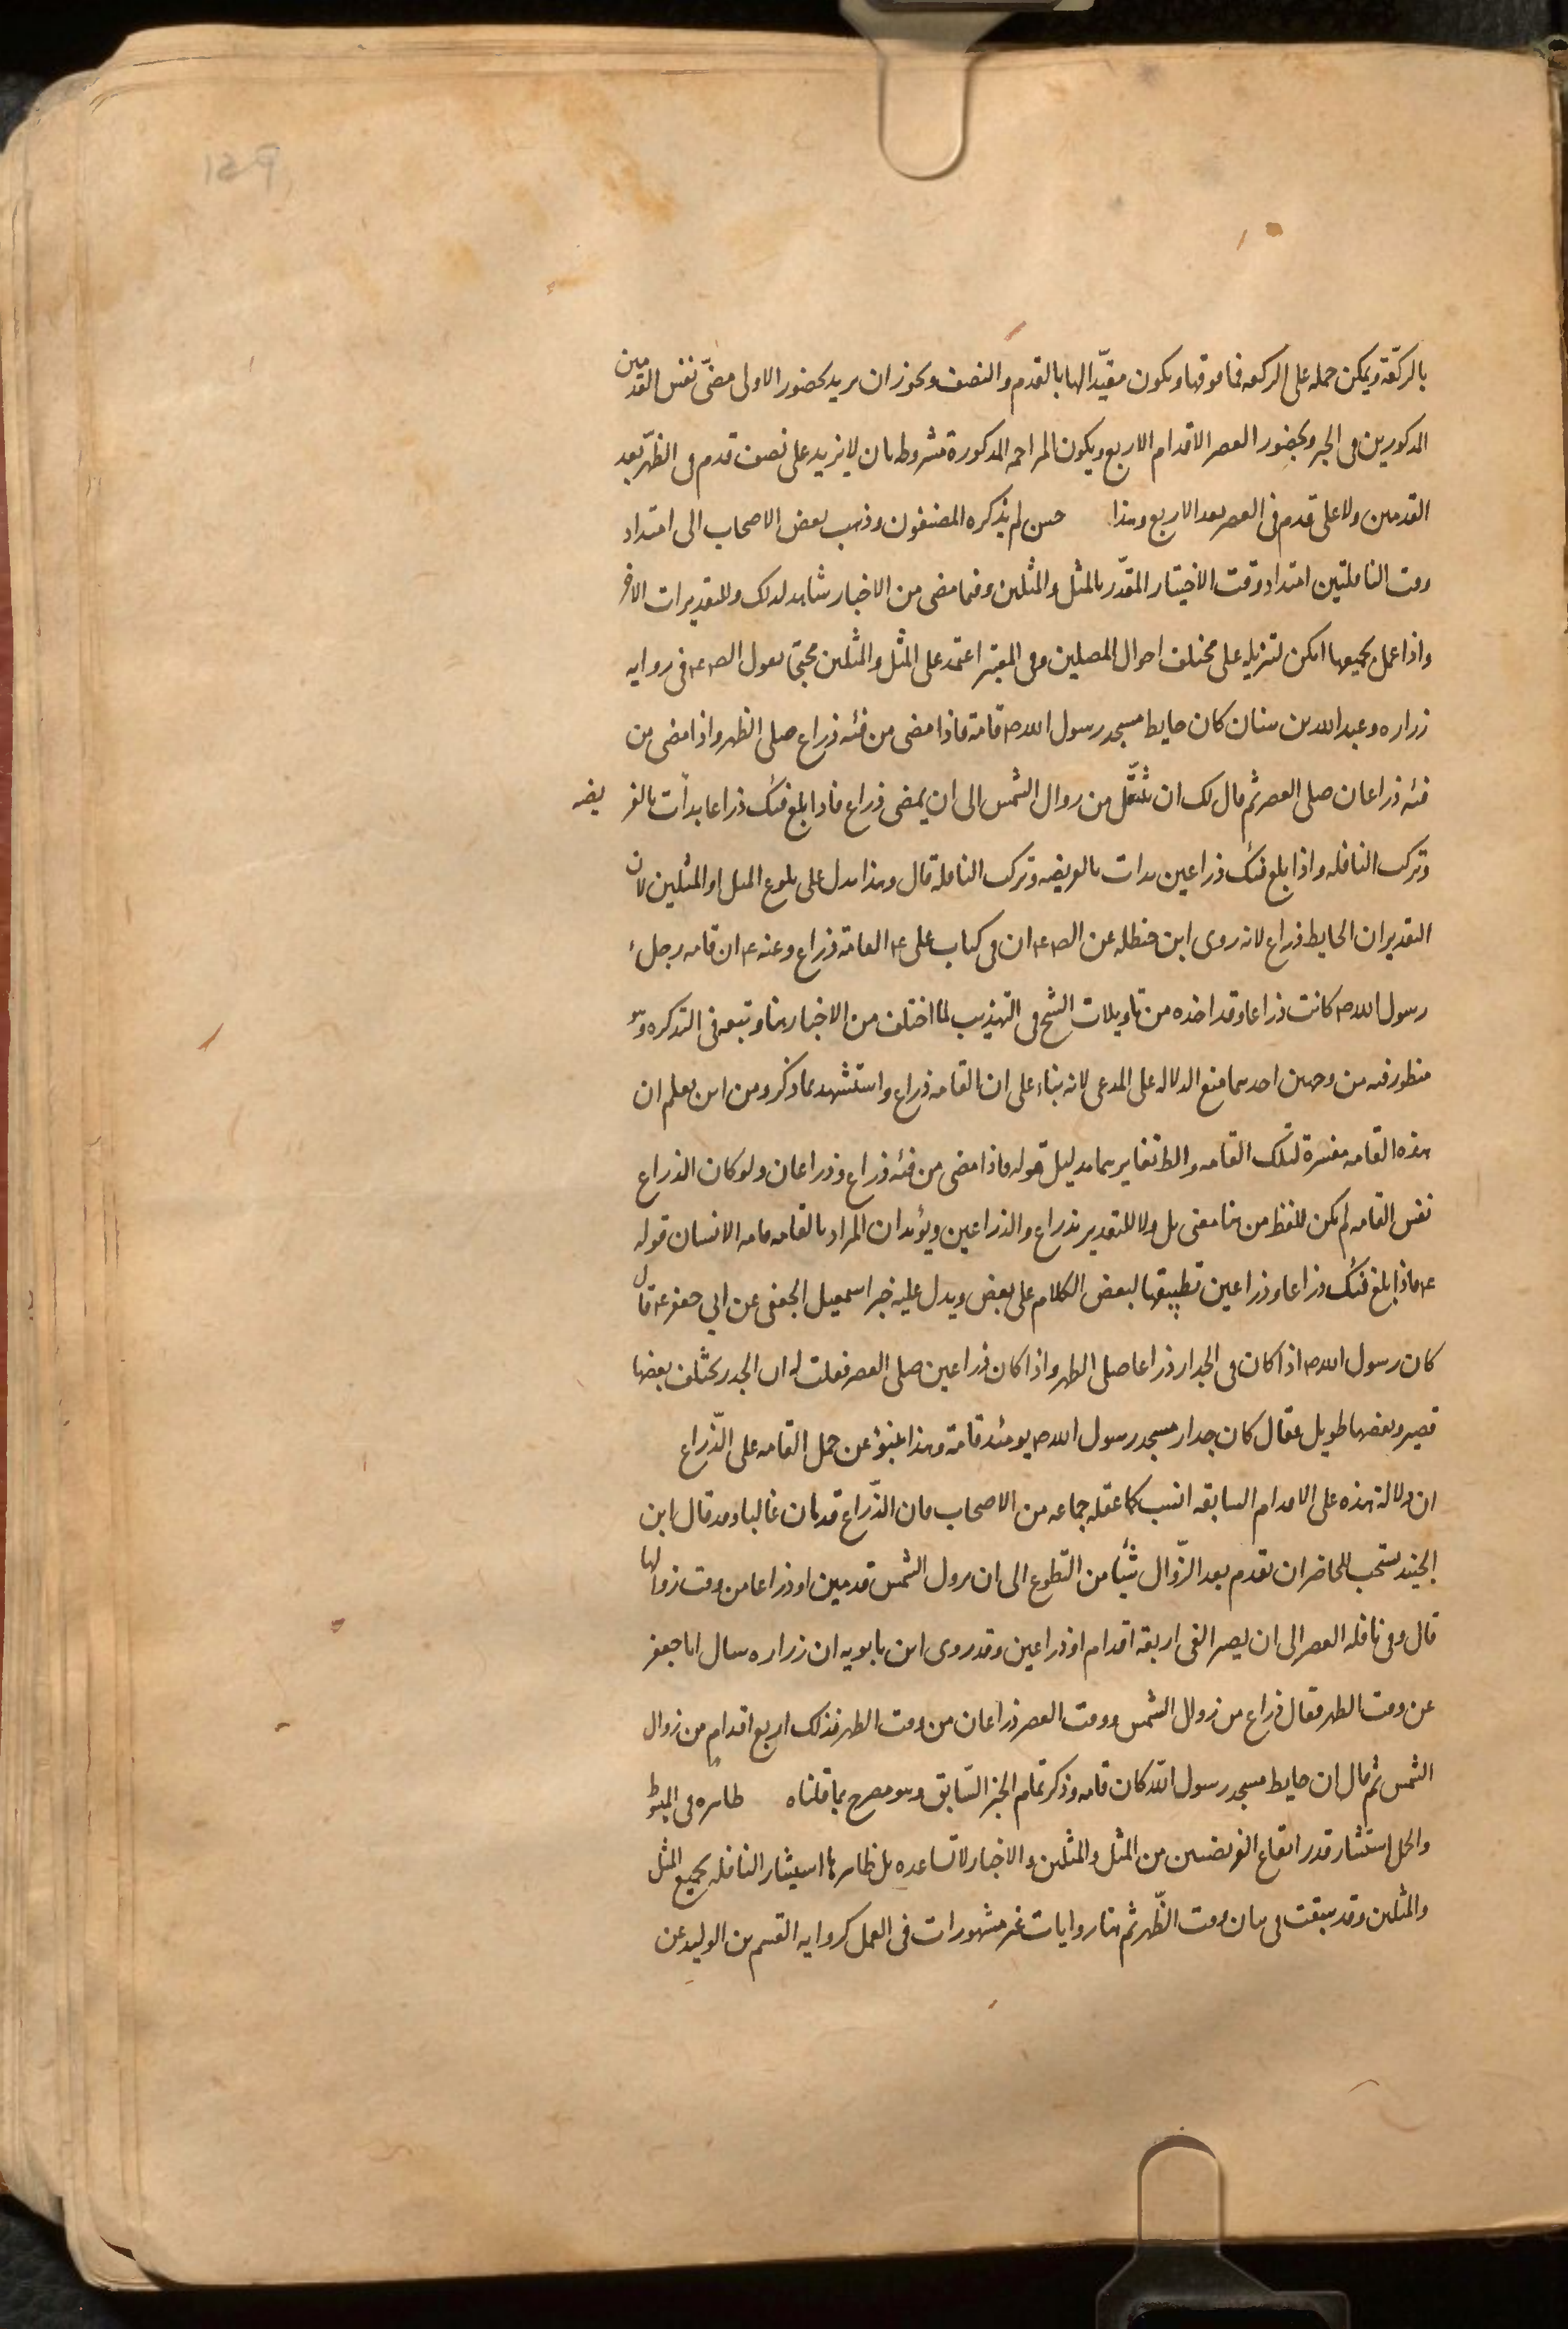 بالركعة ويمكن حمله على الركعه فما فوقها ويكون مقيدا لها بالقدم والنصف ويجوز ان يريد بحضور الاولى مضى نفس القدمين
المذكورين فى الخبر وبحضور العصر الاقدام الاربع ويكون المزاحمه المذكورة مشروطه بان لا يزيد على نصف قدم فى الظهر بعد
القدمين ولا على قدم فى العصر بعد الاربع وهذا حسن لم يذكره المصنفون وذهب بعض الاصحاب الى امتداد
وقت النافلتين امتداد وقت الاختيار المقدر بالمثل والمثلين وفيما مضى من الاخبار شاهد لذلك وللتقديرات الاخر
واذا عمل بجميعها امكن تنزيله على مختلف احوال المصلين وفى المعتبر اعتمد على المثل والمثلين محتج بقول الص ع فى روايه
زراره وعبد الله بن سنان كان حايط مسجد رسول الله ص قامة فاذا مضى من فئه ذراع صلى الظهر واذا مضى من
فئه ذراعان صلى العصر ثم قال لك ان تتنفل من زوال الشمس الى ان يمضى ذراع فاذا بلغ فئك ذراعا بدأت بالفر يضه
وتركت النافله واذا بلغ فئك ذراعين بدات بالفريضه وتركت النافلة قال وهذا يدل على بلوغ المثل او المثلين لان
التقدير ان الحايط ذراع لانه روى ابن حنظله عن الص ع ان فى كتاب على ع القامة ذراع وعنه ع ان قامه رحل
رسول الله ص كانت ذراعا وقد اخذه من تاويلات الشيخ فى التهذيب لما اختلف من الاخبار هنا وتبعه فى التذكره وهو
منظور فيه من وجهين احدهما منع الدلاله على المدعى لانه بناء على ان القامه ذراع واستشهد بما ذكر ومن اين يعلم ان
هذه القامه مفسرة لتلك القامه والظ تغايرهما بدليل قوله فاذا مضى من فئه ذراع وذراعان ولو كان الذراع
نفس القامه لم يكن للفظ من هنا معنى بل ولا للتقدير بذراع والذراعين ويؤيد ان المراد بالقامه قامه الانسان قوله
ع فاذا بلغ فئك ذراعا وذراعين تطبيقها لبعض الكلام على بعض ويدل عليه خبر اسمعيل الجعفى عن ابي جعفر ع قال
كان رسول الله ص اذا كان فى الجدار ذراعا صلى الظهر واذا كان ذراعين صلى العصر فقلت له ان الجدر يختلف بعضها
قصير وبعضها طويل فقال كان جدار مسجد رسول الله ص يومئذ قامة وهذا ينبؤ عن حمل القامه على الذراع
ان دلالة هذه على الاقدام السابقه انسب كما عقله جماعه من الاصحاب فان الذراع قدمان غالبا وقد قال ابن
الجنيد يستحب للحاضر ان يقدم بعد الزوال شيئا من التطوع الى ان يزول الشمس قدمين او ذراعا من وقت زوالها
قال وفى نافله العصر الى ان يصير الفئ اربعة اقدام او ذراعين وقد روى ابن بابويه ان زراره سال ابا جعفر
عن وقت الظهر فقال ذراع من زوال الشمس ووقت العصر ذراعان من وقت الظهر فذلك اربع اقدام من زوال
الشمس ثم قال ان حايط مسجد رسول الله كان قامه وذكر تمام الخبر السابق وهو مصرح بما قلناه ظاهره فى المبسوط
والجمل استثناء قدر ايقاع الفريضتين من المثل والمثلين والاخبار لا تساعده بل ظاهرها استيثار النافله بجميع المثل
والمثلين وقد سبقت فى بيان وقت الظهر ثم هنا روايات غير مشهورات فى العمل كروايه القسم بن الوليد عن